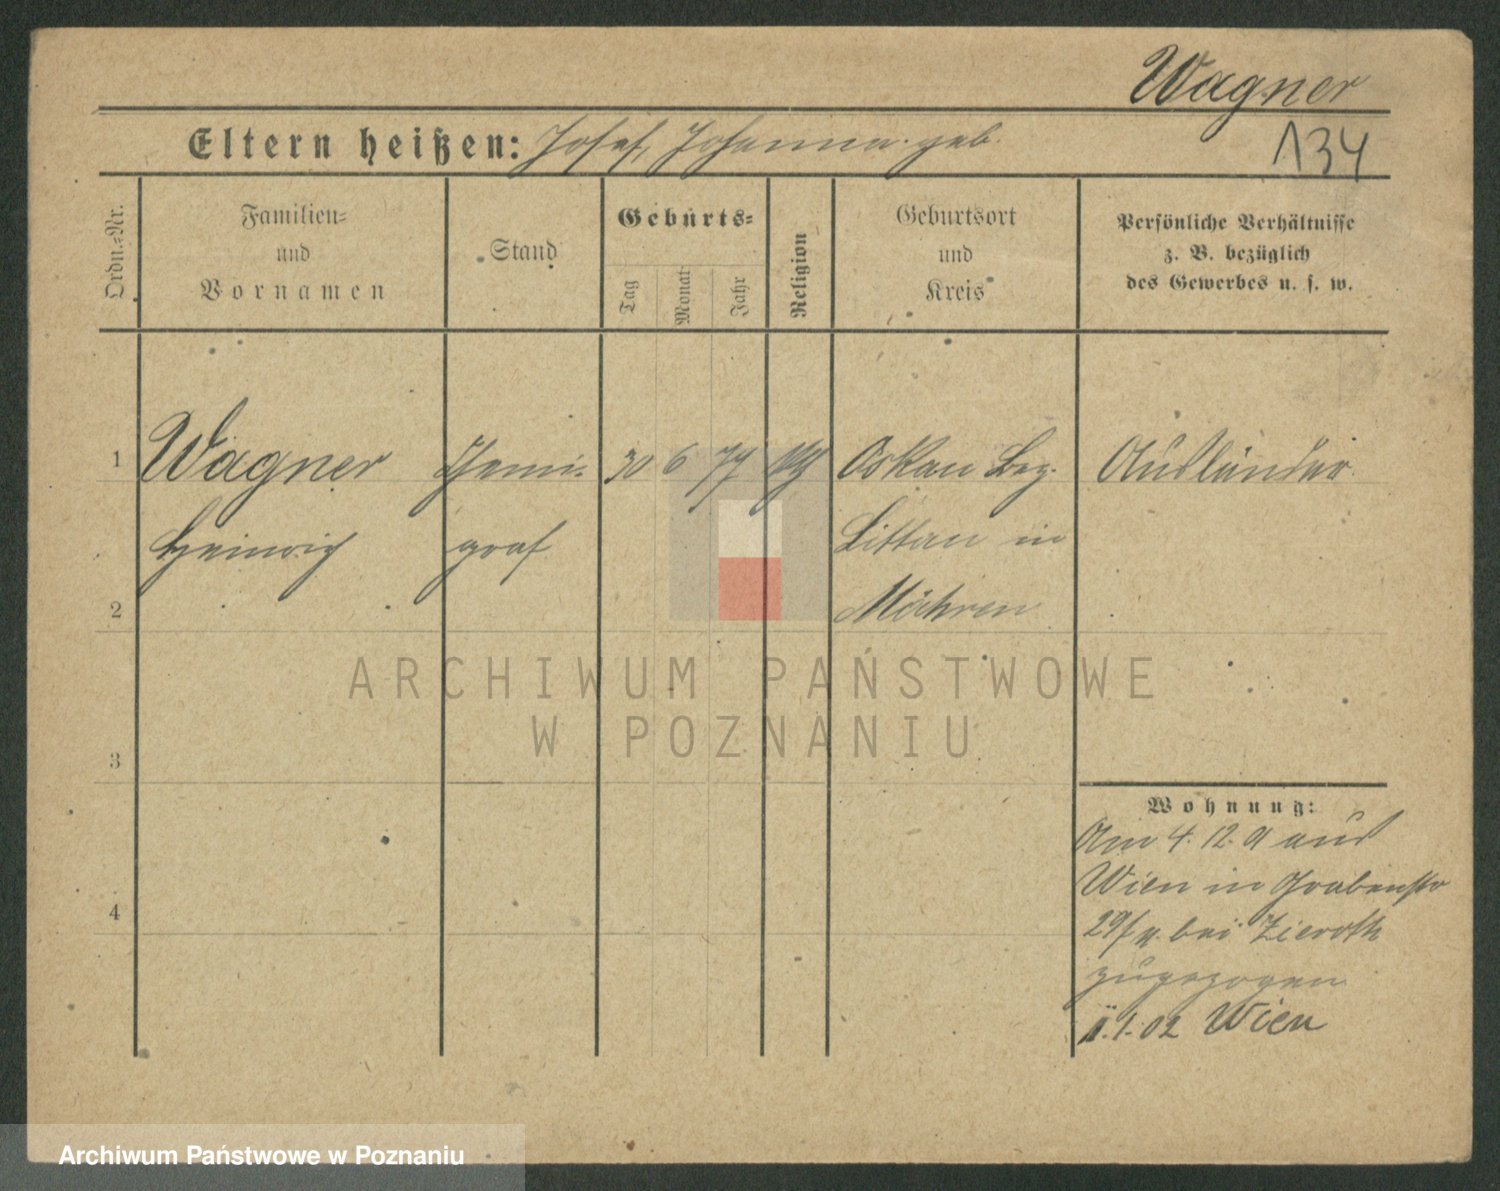 Wagner
134
Eltern heißen: Josef, Johanna geb.
Ordn.-Nr.
Familien-
und
Vornamen
Stand
Geburts-
Tag
Monat
Jahr
Religion
Geburtsort
und
Kreis
Persönliche Verhältnisse
z. B. bezüglich
des Gewerbes u. s. w.
1
Wagner
Heinrich
graf
30 6 77
Oskau Bez.
Littau in
Mähren
Ausländer
2
3
4
Wohnung:
Am 4. 12. 01 aus
Wien in Grabenstr
29/ bei Zieroth
zugezogen
1.02 Wien
ARCHIWUM PAŃSTWOWE
W POZNANIU
Archiwum Państwowe w Poznaniu